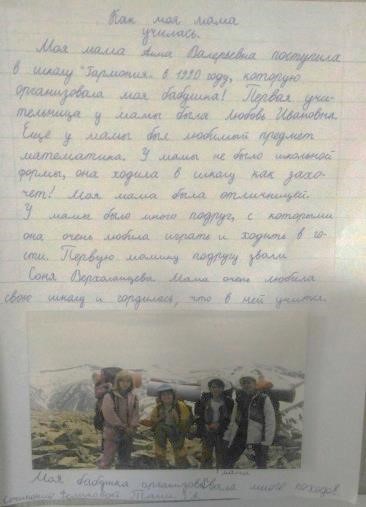 Как моя мама
училась.
Моя мама Анна Валерьевна поступила
в школу "Гармония" в 1990 году, которую
организовала моя бабушка! Первая учи-
тельница у мамы была Любовь Ивановна.
Ещё у мамы был любимый предмет
математика. У мамы не было школьной
формы, она ходила в школу как захо-
чет! Моя мама была отличницей.
У мамы было много подруг, с которыми
она очень любила играть и ходить в го-
сти. Первую мамину подругу звали
Соня Верхоланцева. Мама очень любила
свою школу и гордилась, что в ней учится.
мама
Моя бабушка организовывала много походов
сочинение Тани